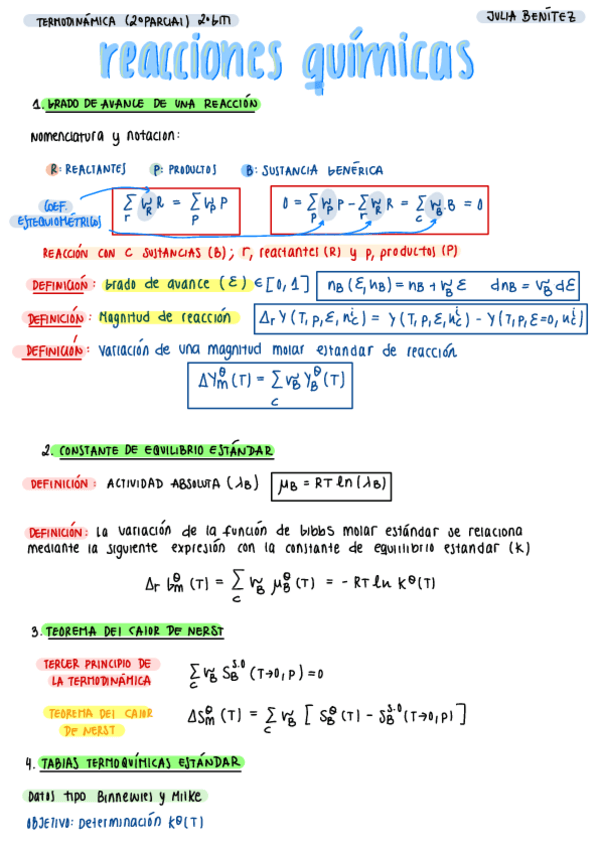 TERMODINÁMICA (2º PARCIAL) 2º BM
JULIA BENÍTEZ
reacciones químicas
1. GRADO DE AVANCE DE UNA REACCIÓN
Nomenclatura y notacion:
R: REACTANTES P: PRODUCTOS B: SUSTANCIA GENÉRICA
COEF. ESTEQUIOMÉTRICOS
∑_r ν_R R = ∑_p ν_P P
0 = ∑_p ν_P P - ∑_r ν_R R = ∑_c ν_B · B = 0
REACCIÓN CON C SUSTANCIAS (B); r, reactantes (R) y p, productos (P)
DEFINICIÓN: Grado de avance (ε) ∈ [0, 1] n_B (ε, n_B) = n_B + ν_B ε dn_B = ν_B dε
DEFINICIÓN: Magnitud de reacción Δ_r Y (T, p, ε, n_c^i) = Y (T, p, ε, n_c^i) - Y (T, p, ε=0, n_c^i)
DEFINICIÓN: Variación de una magnitud molar estandar de reacción
ΔY_m^θ (T) = ∑_c ν_B Y_B^θ (T)
2. CONSTANTE DE EQUILIBRIO ESTÁNDAR
DEFINICIÓN: ACTIVIDAD ABSOLUTA (λ_B) μ_B = RT ln (λ_B)
DEFINICIÓN: La variación de la función de Gibbs molar estándar se relaciona
mediante la siguiente expresión con la constante de equilibrio estandar (K)
Δ_r G_m^θ (T) = ∑_c ν_B μ_B^θ (T) = - RT ln K^θ (T)
3. TEOREMA DEL CALOR DE NERST
TERCER PRINCIPIO DE
LA TERMODINÁMICA
∑_c ν_B S_B^{s.o} (T→0, p) = 0
TEOREMA DEL CALOR
DE NERST
ΔS_m^θ (T) = ∑_c ν_B [ S_B^θ (T) - S_B^{s.o} (T→0, p) ]
4. TABLAS TERMOQUÍMICAS ESTÁNDAR
Datos tipo Binnewies y Milke
OBJETIVO: Determinación K^θ (T)